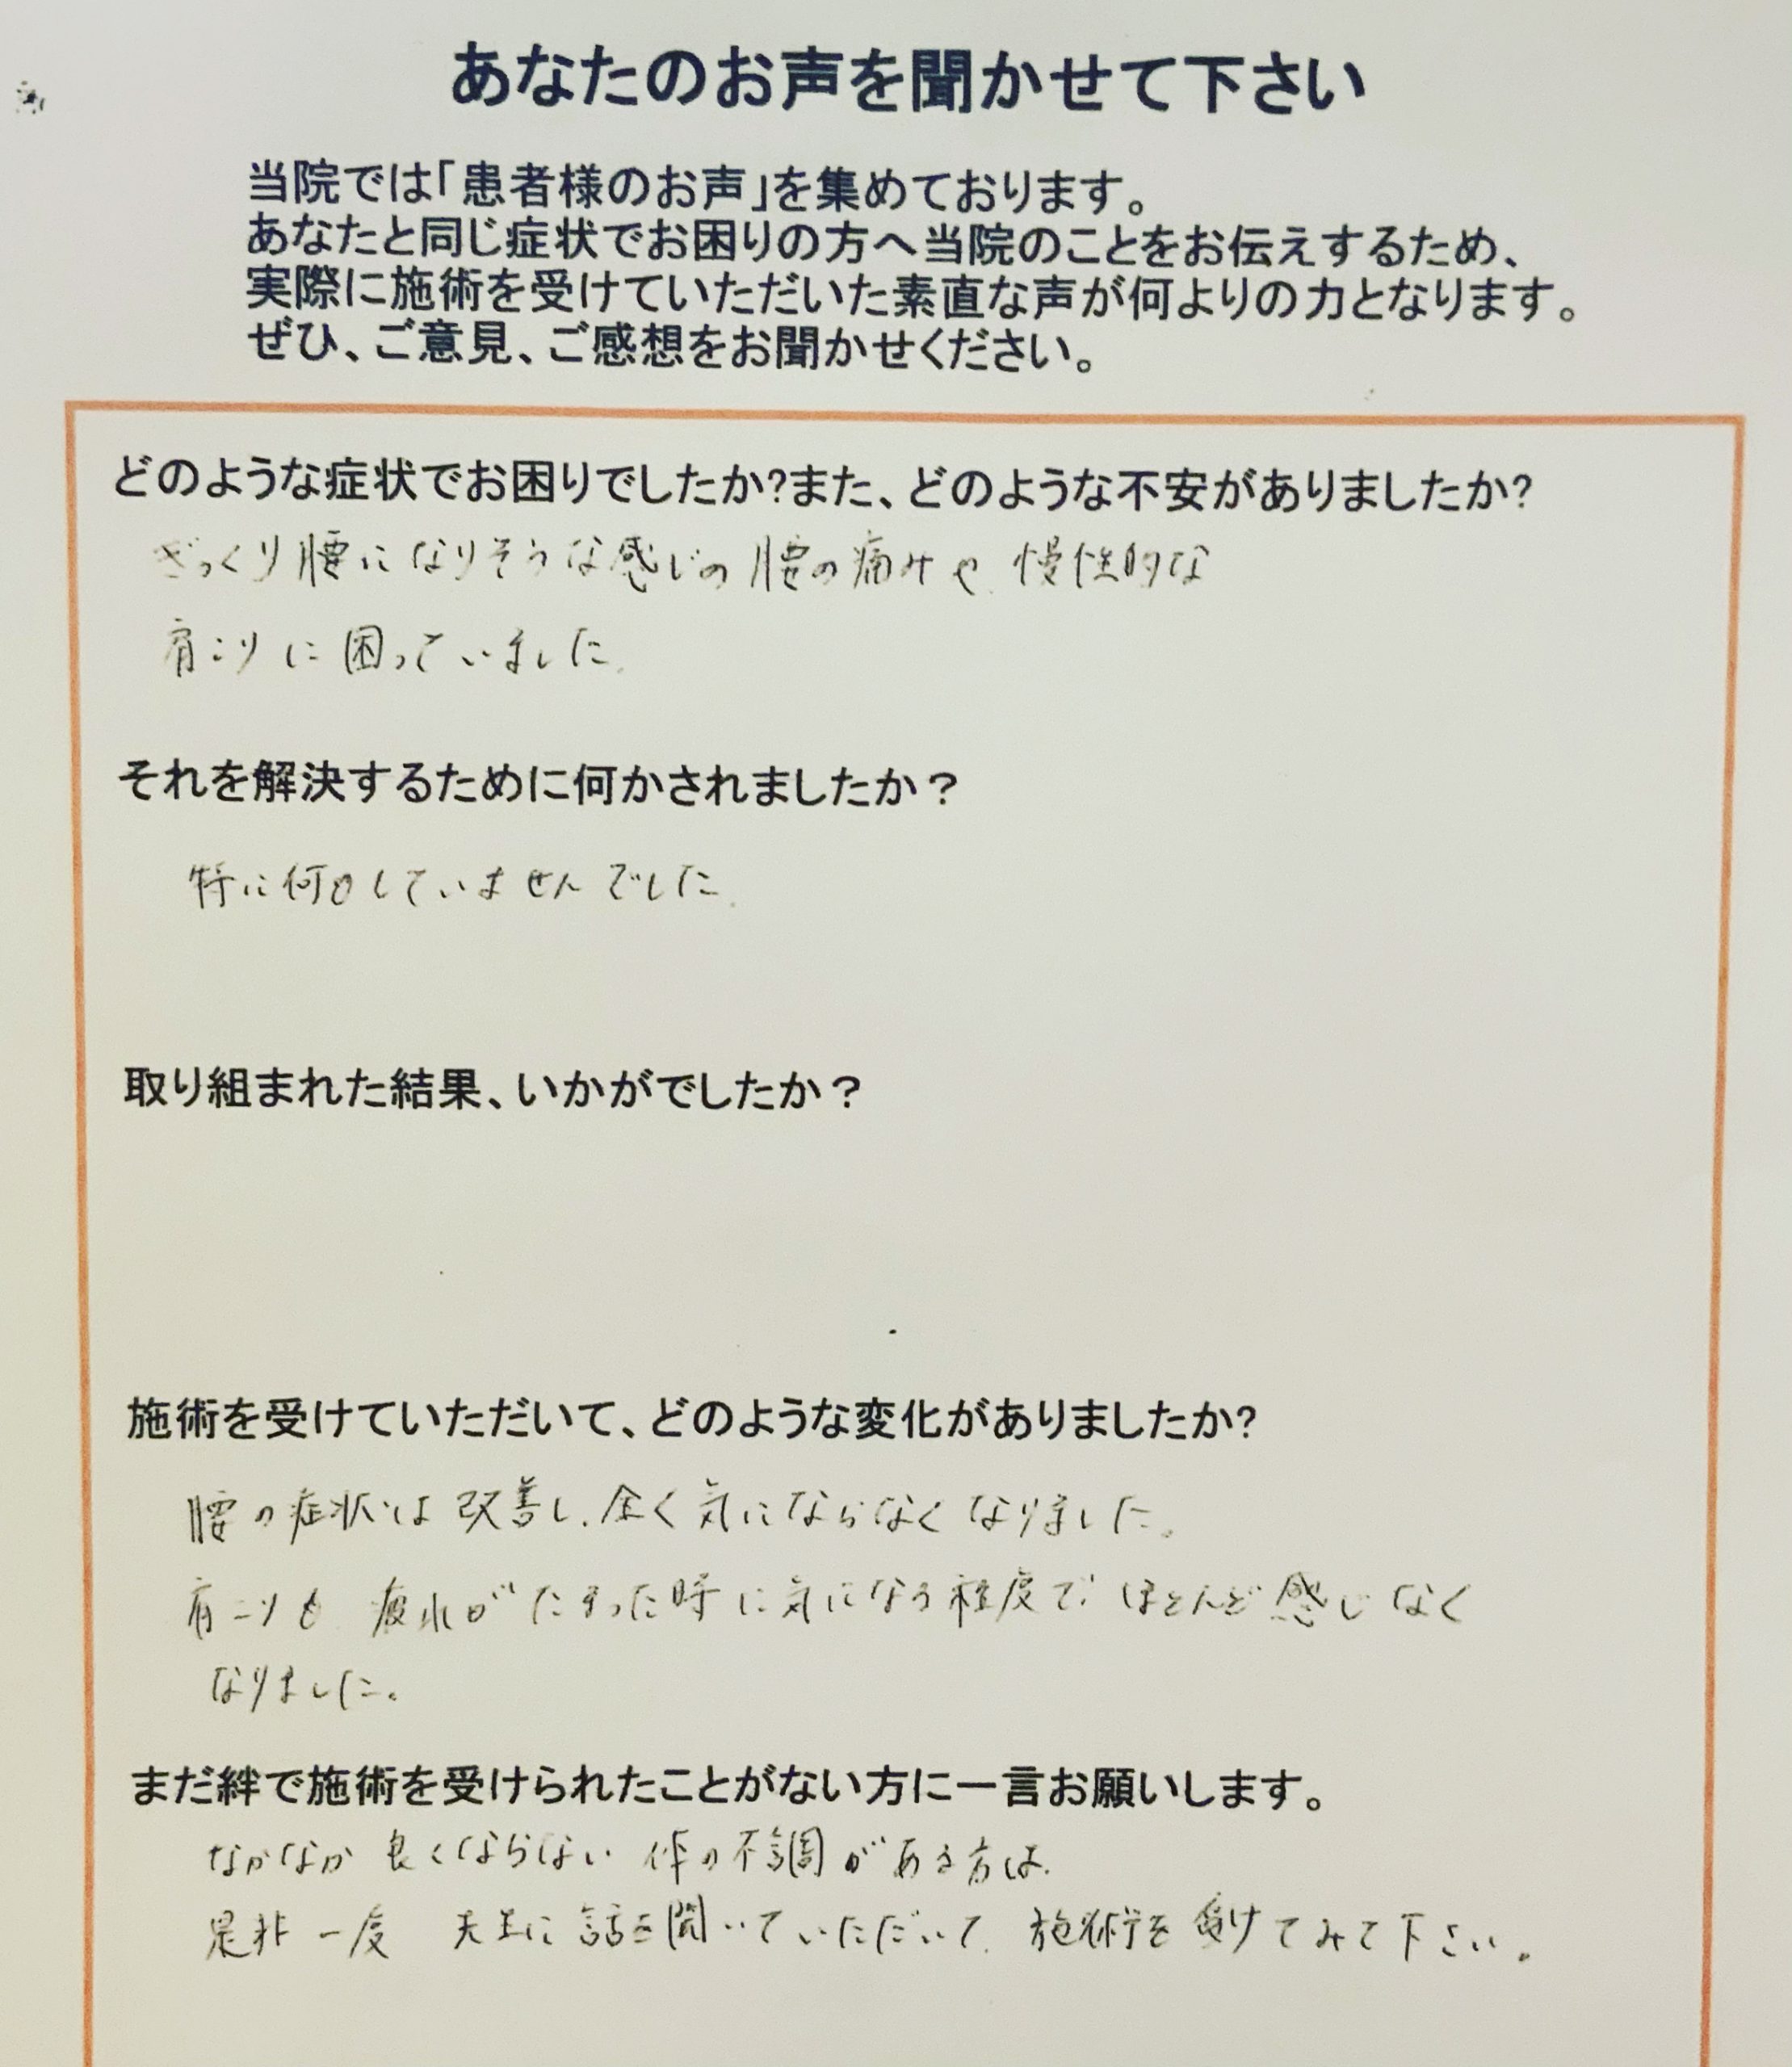 あなたのお声を聞かせて下さい
当院では「患者様のお声」を集めております。
あなたと同じ症状でお困りの方へ当院のことをお伝えするため、
実際に施術を受けていただいた素直な声が何よりの力となります。
ぜひ、ご意見、ご感想をお聞かせください。
どのような症状でお困りでしたか?また、どのような不安がありましたか?
ぎっくり腰になりそうな感じの腰の痛みや、慢性的な
肩こりに困っていました。
それを解決するために何かされましたか？
特に何もしていませんでした。
取り組まれた結果、いかがでしたか？
施術を受けていただいて、どのような変化がありましたか?
腰の症状は改善し、全く気にならなくなりました。
肩こりも疲れがたまった時に気になる程度で、ほとんど感じなく
なりました。
まだ絆で施術を受けられたことがない方に一言お願いします。
なかなか良くならない体の不調がある方は、
是非一度 先生に話を聞いていただいて、施術を受けてみて下さい。